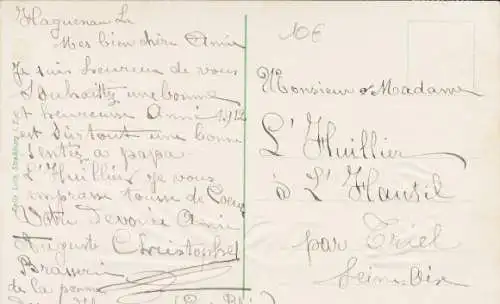 Haguenau Le
Mes bien chère Amie
Je suis heureux de vous
Souhaitte une bonne
et heureuse Anné 1912
est surtout une bonne
sentée a papa
L'Huillier je vous
embrasse tousse de Coeur
Votre devoué Amie
Auguste Christophel
Brasserie
de la
10€
Monsieur & Madame
L'Huillier
à L'Hautil
par Triel
Seine & Oise